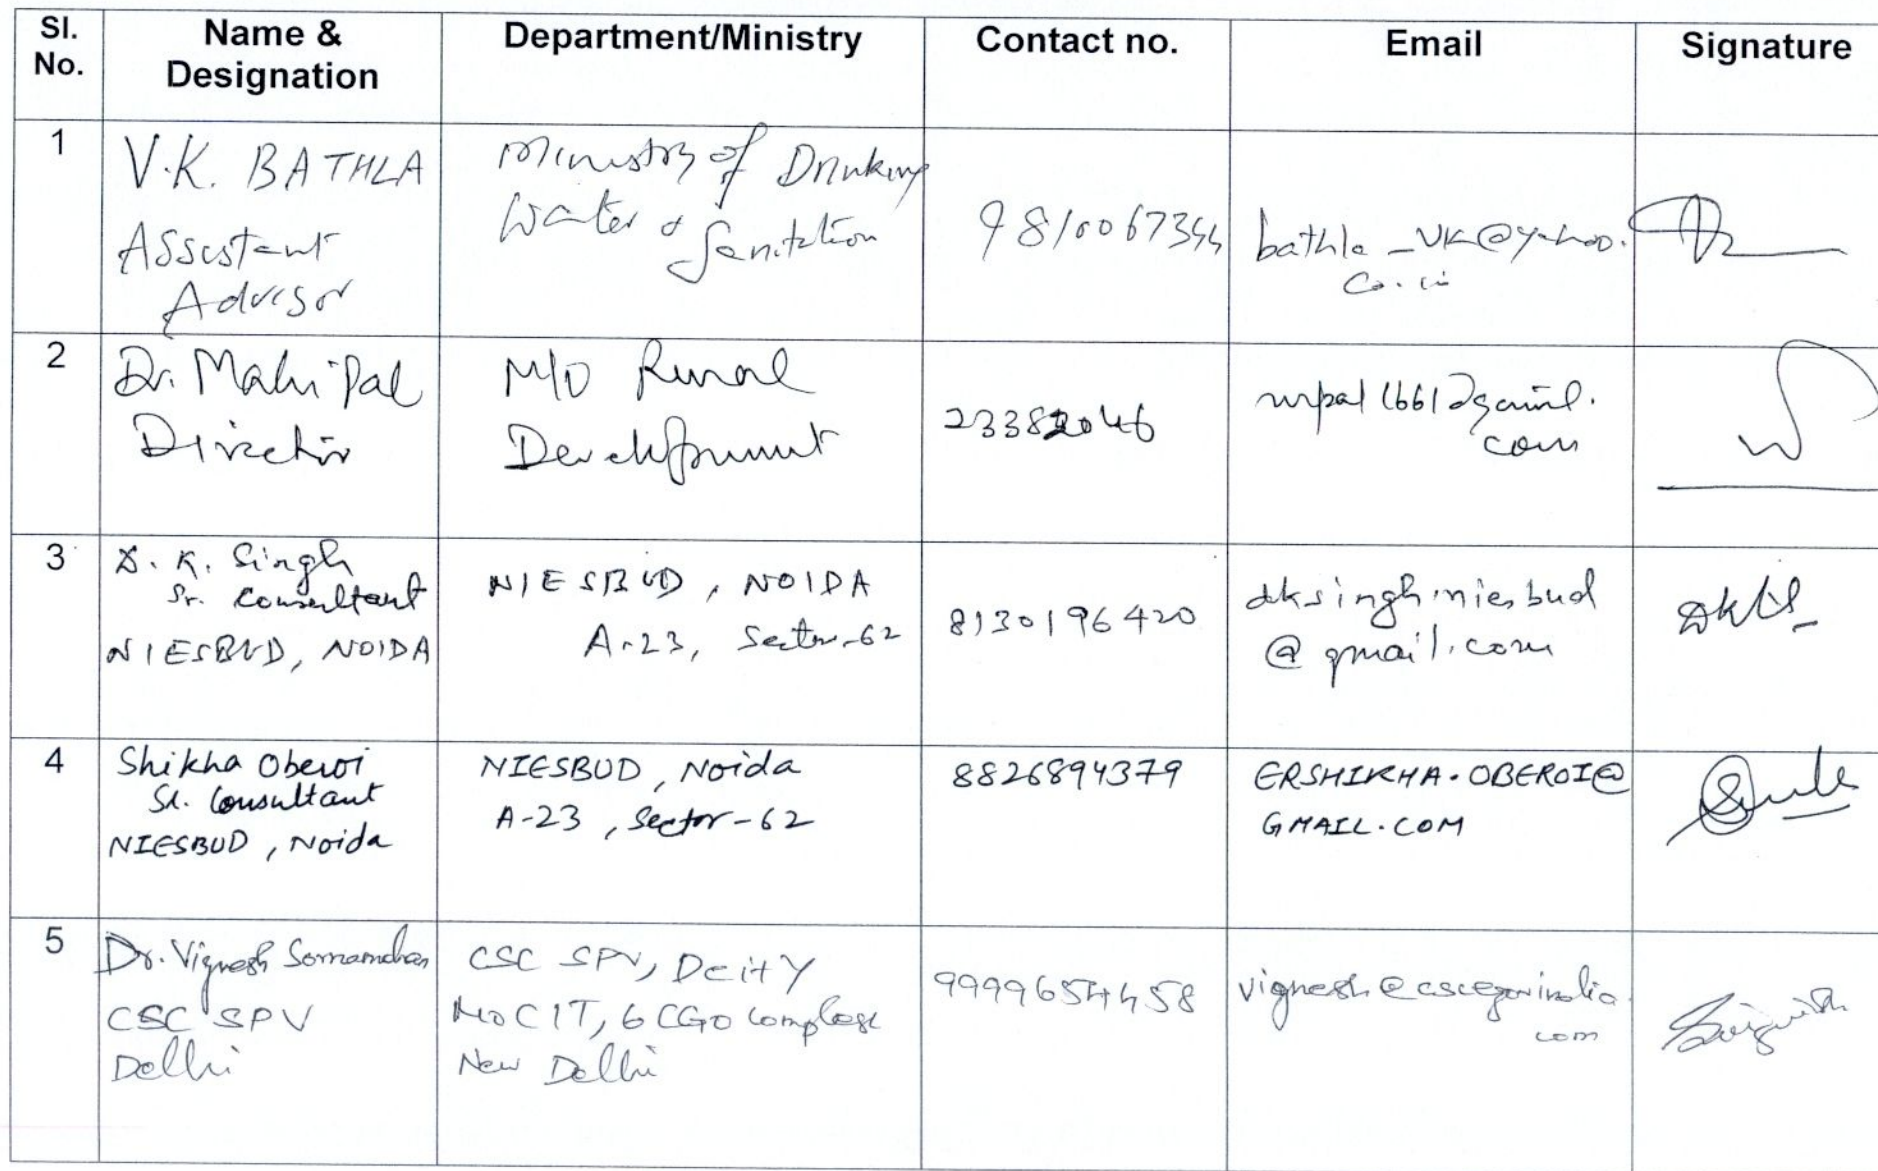 Sl. No. Name & Designation Department/Ministry Contact no. Email Signature
1
V.K. BATHLA
Assistant
Advisor
Ministry of Drinking
Water & Sanitation
9810067344
bathla_vk@yahoo.
co.in
2
Dr. Mahi Pal
Director
M/O Rural
Development
23382046
mpal1661@gmail.
com
3
D. K. Singh
Sr. Consultant
NIESBUD, NOIDA
NIESBUD, NOIDA
A-23, Sector-62
8130196420
dksingh.niesbud
@gmail.com
4
Shikha Oberoi
Sr. Consultant
NIESBUD, Noida
NIESBUD, Noida
A-23, Sector-62
8826894379
ERSHIKHA.OBEROI@
GMAIL.COM
5
Dr. Vignesh
CSC SPV
Delhi
CSC SPV, DeitY
MoCIT, 6 CGO Complex
New Delhi
9999654458
vignesh@cscegovindia.
com